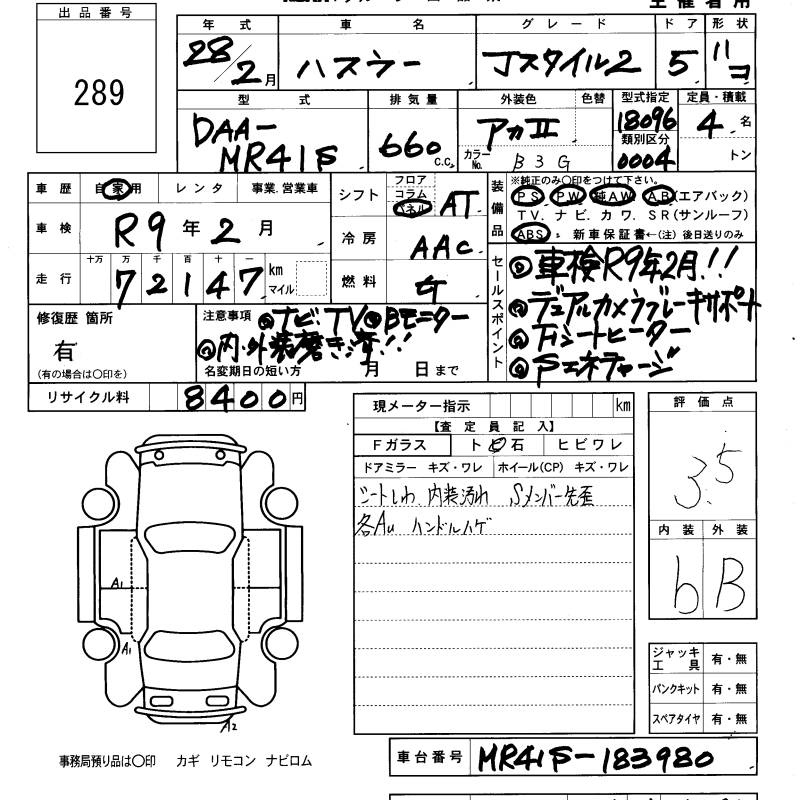 出品番号
289
年式 車名 グレード ドア 形状
28/2月 ハスラー Jスタイル2 5 ハコ
型式 排気量 外装色 色替 型式指定 定員・積載
DAA-MR41S 660 c.c. アカII 18096 4名
カラーNo. B3G 類別区分 0004 トン
車歴 自家用 レンタ 事業.営業車
車検 R9年2月
走行 十万 万 千 百 十 一
72147 km マイル
シフト フロア コラム パネル AT
冷房 AAC
燃料 ガ
装備品 ※純正のみ〇印をつけて下さい。
PS PW 純AW A.B(エアバック)
TV. ナビ. カワ. SR(サンルーフ)
ABS 新車保証書←(注)後日送りのみ
セールスポイント
◎車検R9年2月!!
◎デュアルカメラブレーキサポート
◎Fシートヒーター
◎Sエネチャージ
修復歴 箇所
有
(有の場合は〇印を)
注意事項 ◎ナビTV◎Bモニター
◎内・外装磨き済!!
名変期日の短い方 月 日まで
リサイクル料 8400円
現メーター指示 km
【査定員記入】
Fガラス トビ石 ヒビワレ
ドアミラー キズ・ワレ ホイール(CP) キズ・ワレ
シートしわ、内装汚れ Sメンバー先歪
各Au ハンドルハゲ
評価点
3.5
内装 外装
b B
A1
A1
A2
ジャッキ工具 有・無
パンクキット 有・無
スペアタイヤ 有・無
事務局預り品は〇印 カギ リモコン ナビロム
車台番号 MR41S-183980